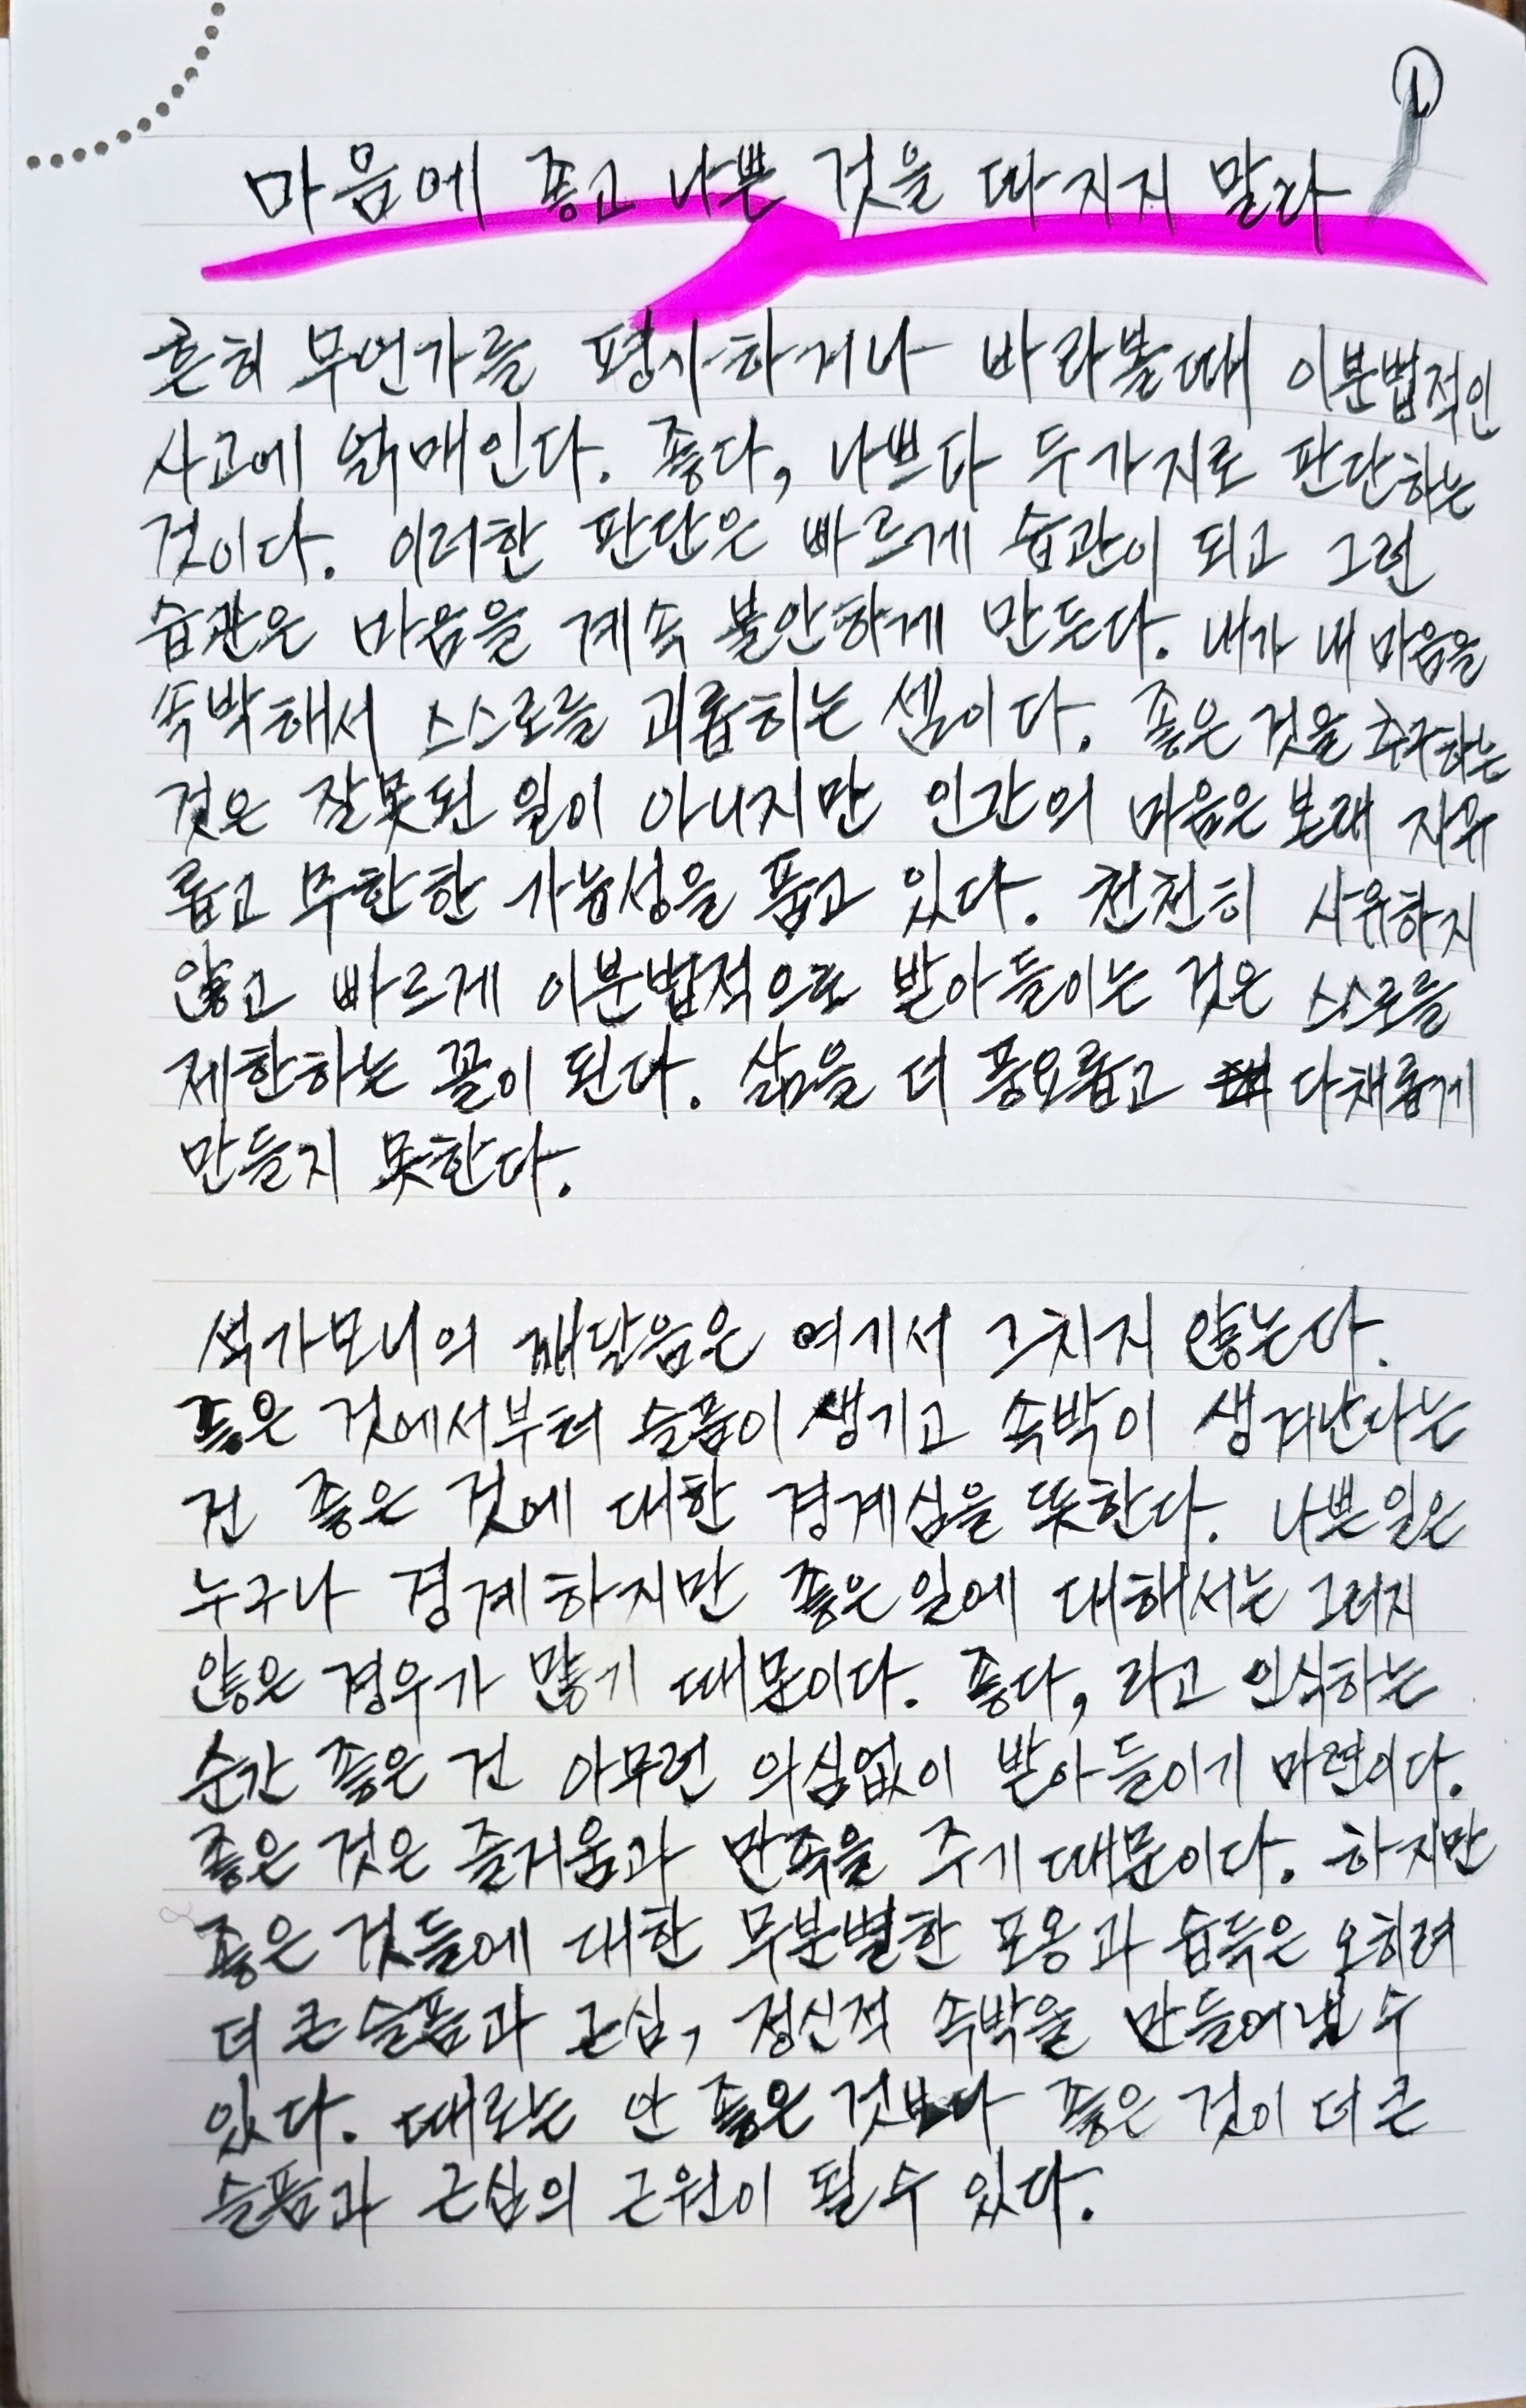 ①
마음에 좋고 나쁜 것을 따지지 말라
흔히 무언가를 평가하거나 바라볼때 이분법적인
사고에 얽매인다. 좋다, 나쁘다 두가지로 판단하는
것이다. 이러한 판단은 빠르게 습관이 되고 그런
습관은 마음을 계속 불안하게 만든다. 내가 내 마음을
속박해서 스스로를 괴롭히는 셈이다. 좋은 것을 추구하는
것은 잘못된 일이 아니지만 인간의 마음은 본래 자유
롭고 무한한 가능성을 품고 있다. 천천히 사유하지
않고 빠르게 이분법적으로 받아들이는 것은 스스로를
제한하는 꼴이 된다. 삶을 더 풍요롭고 다채롭게
만들지 못한다.
석가모니의 깨달음은 여기서 그치지 않는다.
좋은 것에서부터 슬픔이 생기고 속박이 생겨난다는
건 좋은 것에 대한 경계심을 뜻한다. 나쁜 일은
누구나 경계하지만 좋은 일에 대해서는 그러지
않은 경우가 많기 때문이다. 좋다, 라고 인식하는
순간 좋은 건 아무런 의심없이 받아들이기 마련이다.
좋은 것은 즐거움과 만족을 주기 때문이다. 하지만
좋은 것들에 대한 무분별한 포옹과 습득은 오히려
더 큰 슬픔과 근심, 정신적 속박을 만들어낼 수
있다. 때로는 안 좋은 것보다 좋은 것이 더 큰
슬픔과 근심의 근원이 될 수 있다.